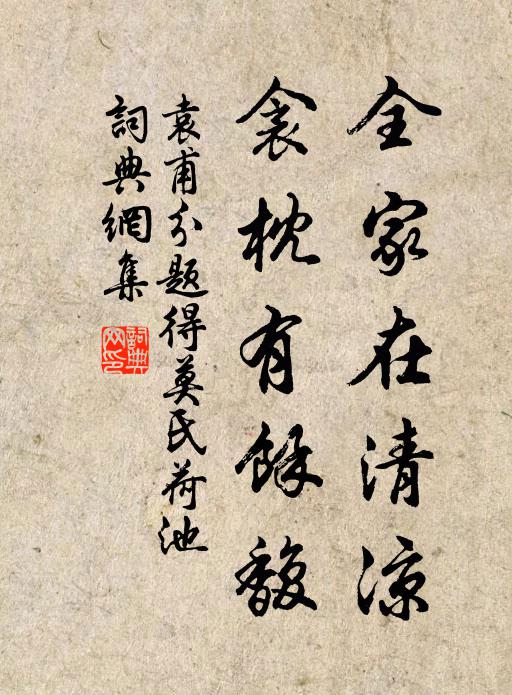 全家在清涼
衾枕有餘馥
袁甫分題得莫氏荷池
詞典網集
詞典網印